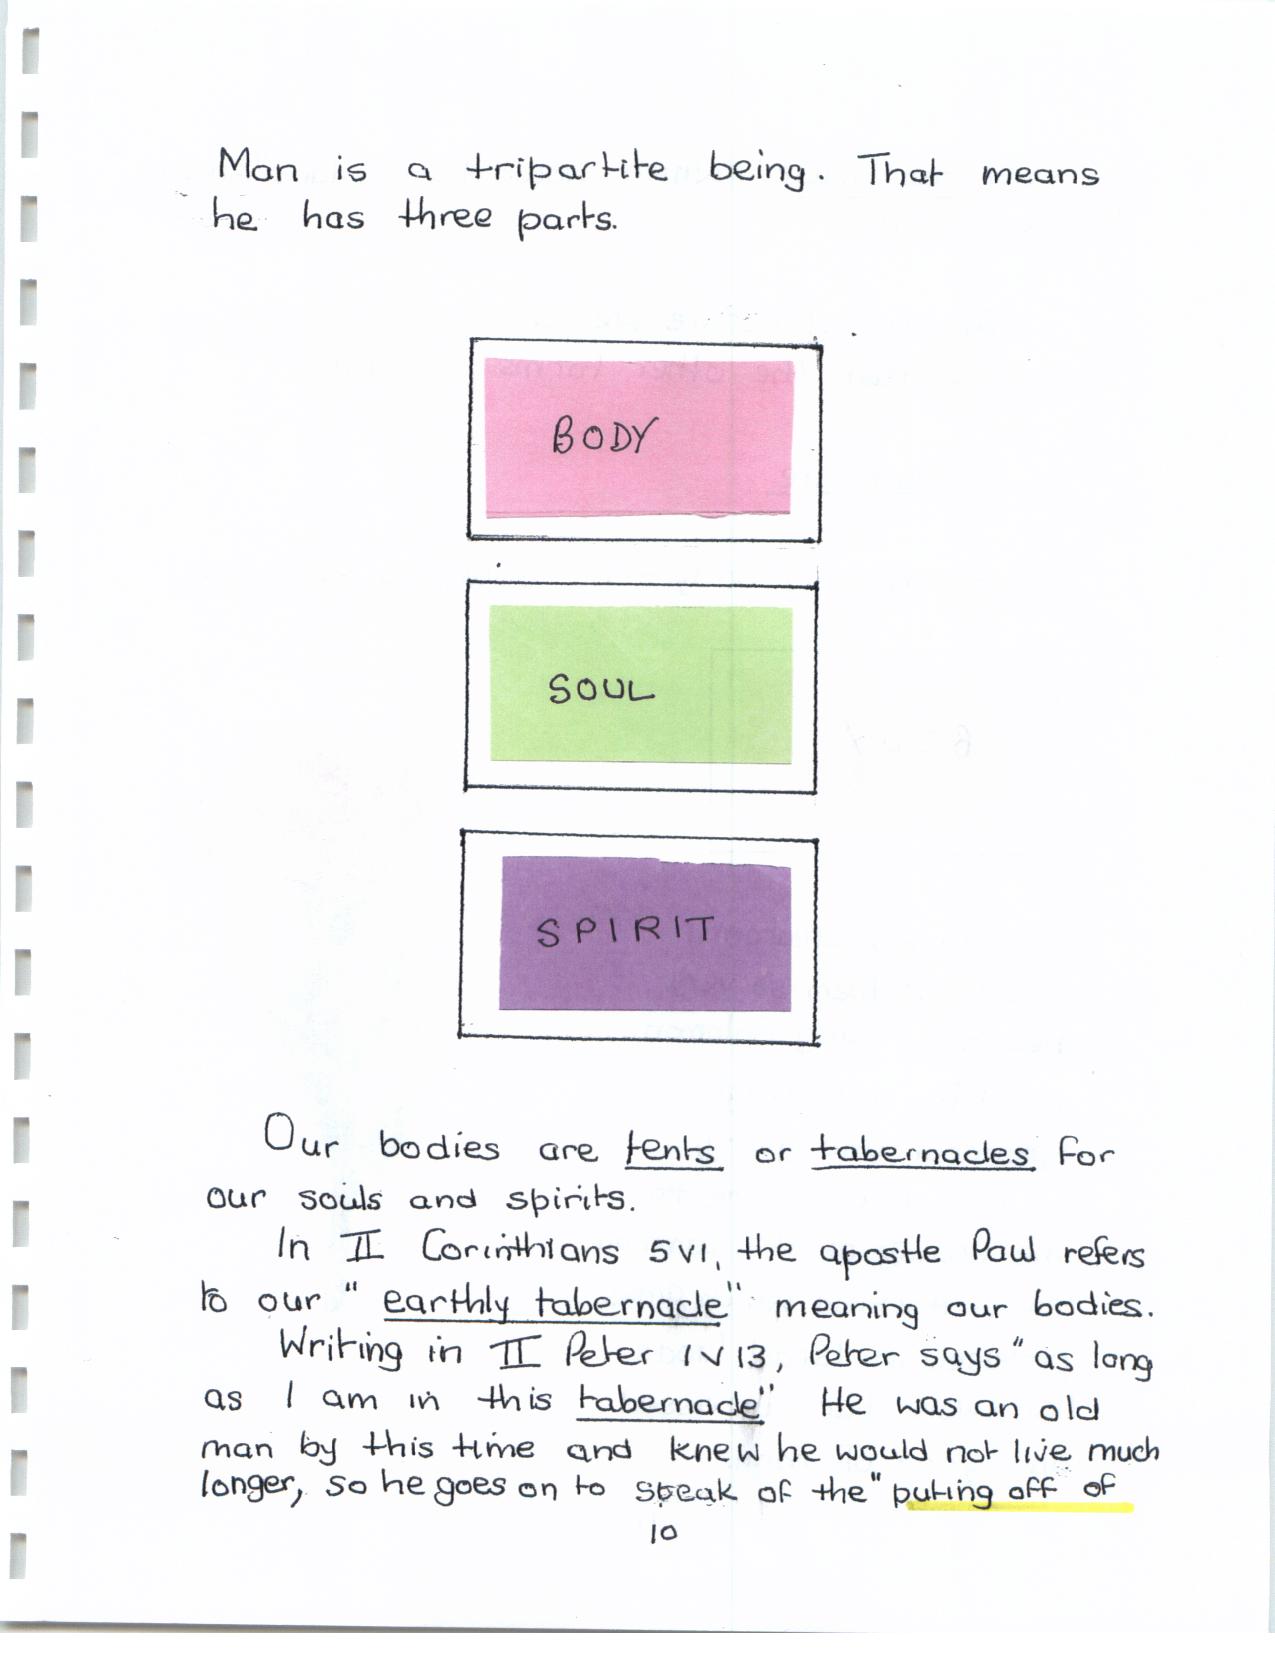 Man is a tripartite being. That means
he has three parts.
BODY
SOUL
SPIRIT
Our bodies are tents or tabernacles for
our souls and spirits.
In II Corinthians 5 v1, the apostle Paul refers
to our "earthly tabernacle" meaning our bodies.
Writing in II Peter 1 v 13, Peter says "as long
as I am in this tabernacle" He was an old
man by this time and knew he would not live much
longer, so he goes on to speak of the "puting off of
10